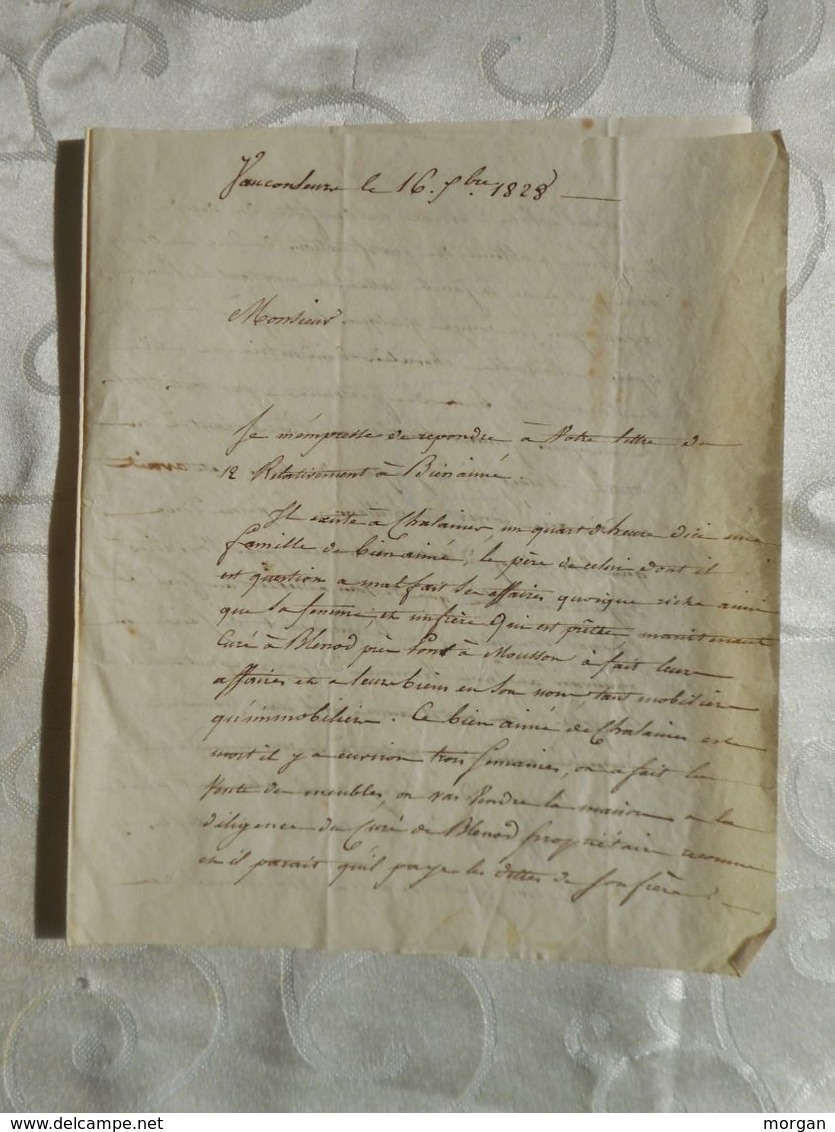 Vaucouleurs le 16. 9bre 1828
Monsieur
Je m'empresse de repondre à Votre lettre du
12 Relativement à Bienaimé.
Il existe à Chalaines, un quart d'heure d'ici une
famille de bienaimé, le père de celui dont il
est question a mal fait ses affaires quoique riche ainsi
que sa femme, et un frère qui est prêtre maintenant
Curé à Blenod près Pont à Mousson à fait leurs
affaires et a leurs biens en son nom, tant mobilière
qu'immobilière. Ce bien aimé de Chalaines est
mort il y a environ trois semaines, on a fait la
Vente des meubles, on vas Vendre la maison a la
diligence du Curé de Blenod propriétaire reconnu
et il parait qu'il paye les dettes de son frère.
delcampe.net
morgan